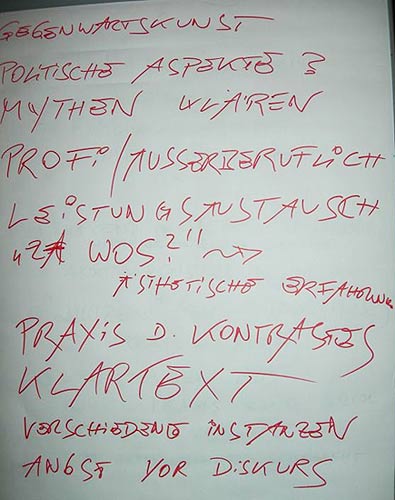 GEGENWARTSKUNST
POLITISCHE ASPEKTE ?
MYTHEN KLÄREN
PROFI/AUSSERBERUFLICH
LEISTUNGSAUSTAUSCH
WOS?"
ÄSTHETISCHE ERFAHRUNG
PRAXIS D. KONTRASTES
KLARTEXT
VERSCHIEDENE INSTANZEN
ANGST VOR DISKURS